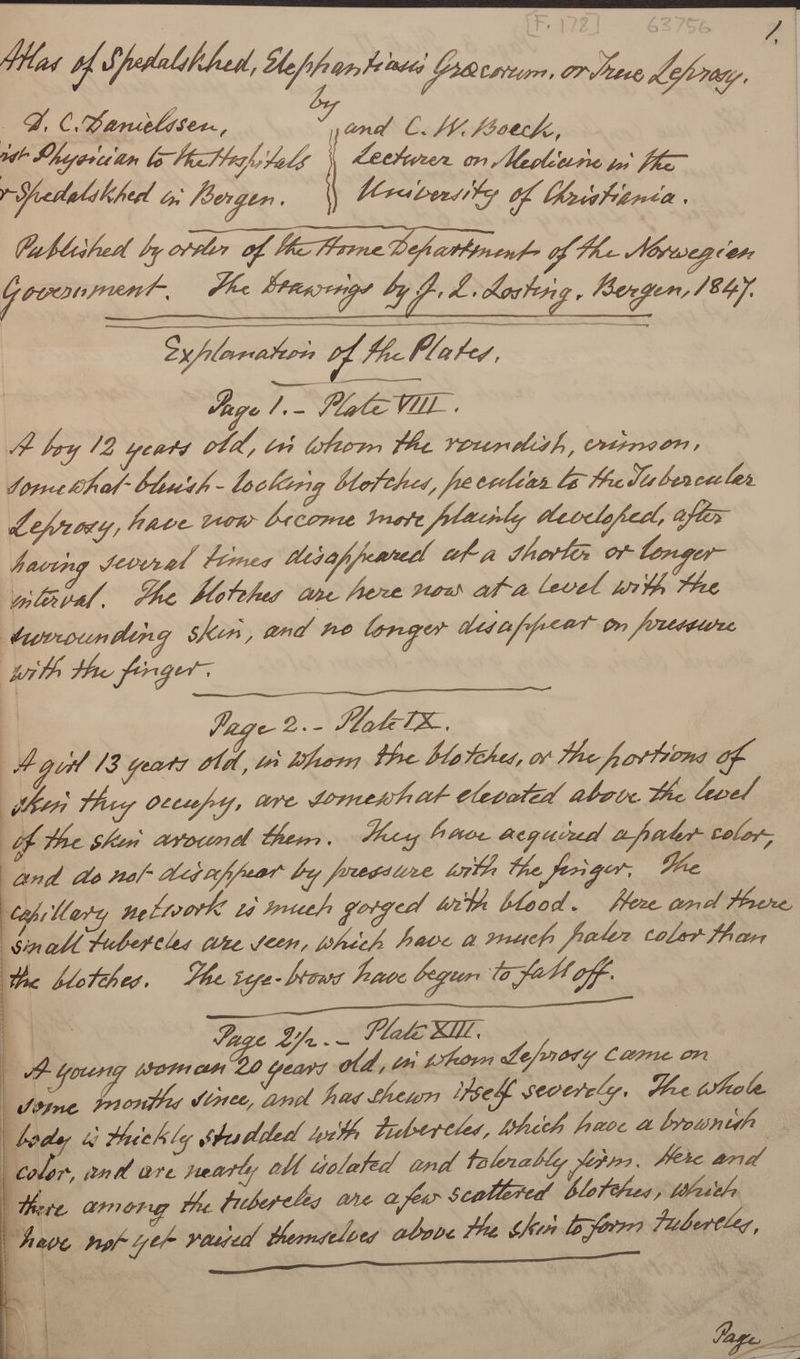 [F. 178] 63756 1.
Atlas of Spedalskhed, Elephantiasis Græcorum, or True Leprosy.
by
D. C. Danielssen, and C. W. Boeck,
ist Physician to the Hospitals Lecturer on Medicine in the
r Spedalskhed in Bergen. University of Christiania.
Published by order of the Home Department of the Norwegian
Government. The Drawings by J. L. Losting. Bergen, 1847.
Explanation of the Plates.
Page 1. - Plate VIII.
A boy 12 years old, in whom the roundish, crimson,
somewhat bluish-looking blotches, peculiar to the Tubercular
Leprosy, have now become more plainly developed, after
having several times disappeared at a shorter or longer
interval. The blotches are here now at a level with the
surrounding skin, and no longer disappear on pressure
with the finger.
Page 2. - Plate IX.
A girl 13 years old, in whom the blotches, or the portions of
skin they occupy, are somewhat elevated above the level
of the skin around them. They have acquired a paler color,
and do not disappear by pressure with the finger. The
capillary network is much gorged with blood. Here and there
small tubercles are seen, which have a much paler color than
the blotches. The eye-brows have begun to fall off.
Page 2½. - Plate XIII.
A young woman 20 years old, in whom Leprosy came on
some months since, and has shewn itself severely. The whole
body is thickly studded with tubercles, which have a brownish
color, and are nearly all isolated and tolerably firm. Here and
there among the tubercles are a few scattered blotches, which
have not yet raised themselves above the skin to form tubercles.
Page